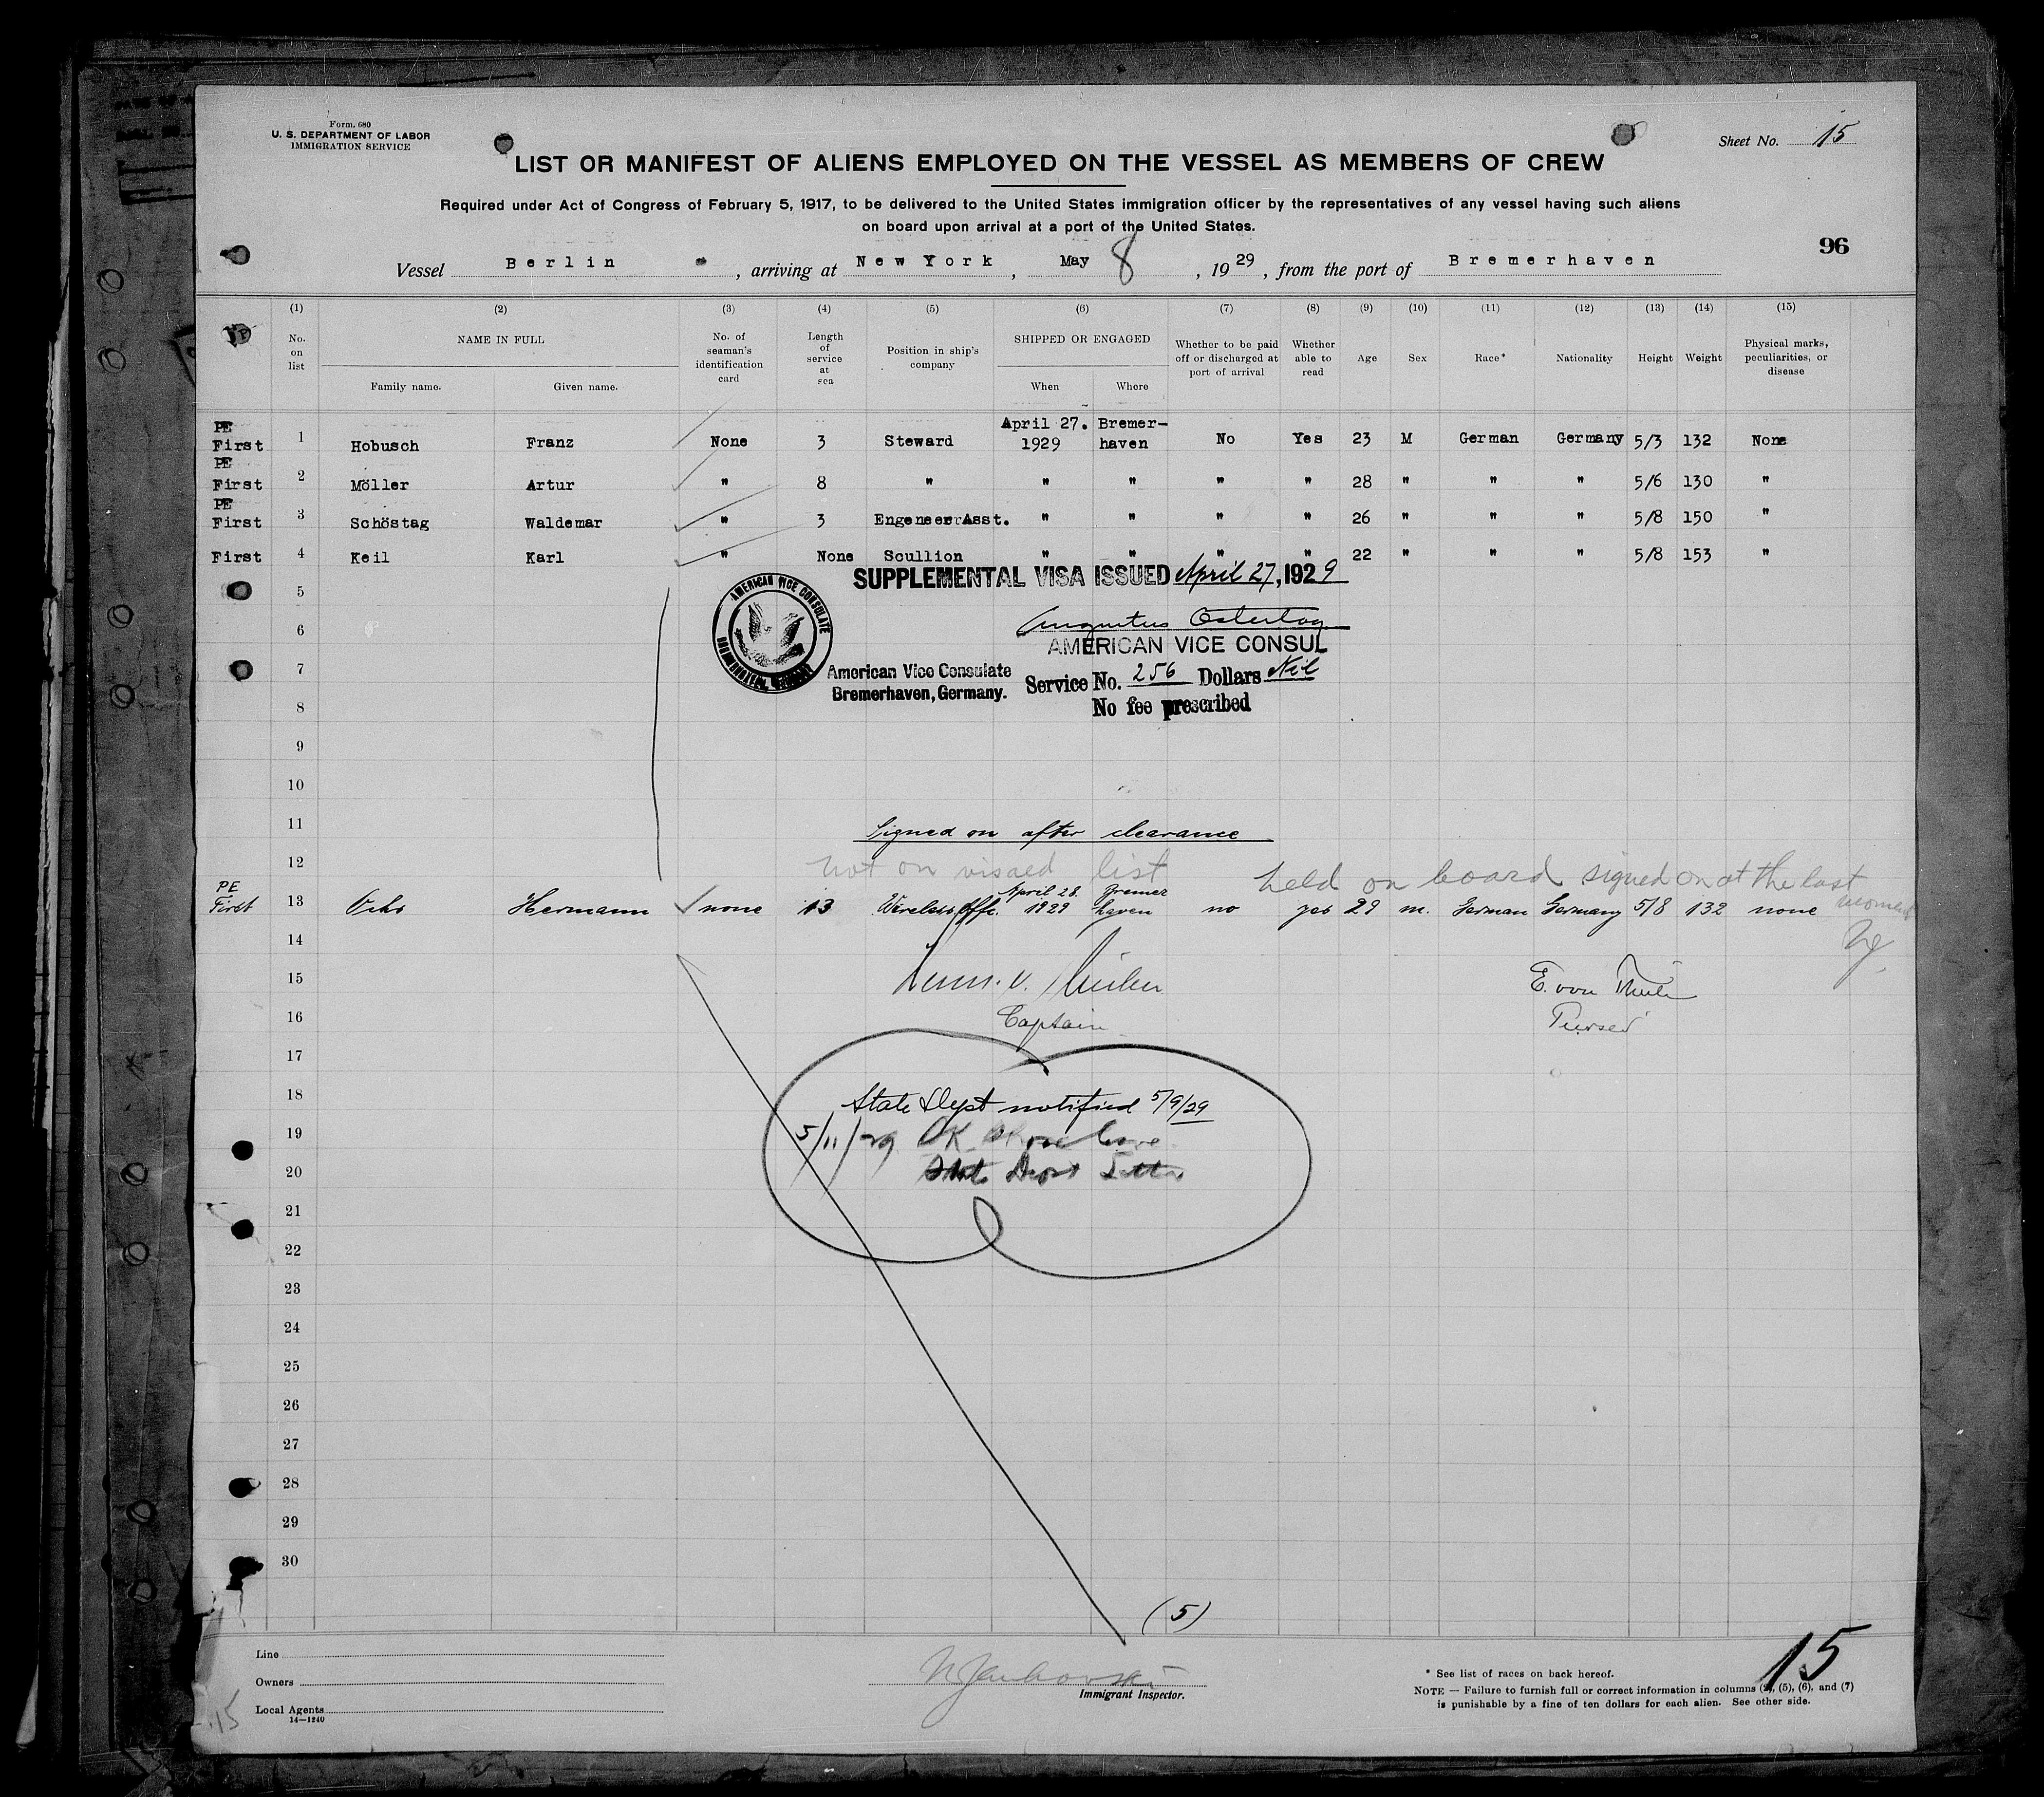 Form 680
U. S. DEPARTMENT OF LABOR
IMMIGRATION SERVICE
Sheet No. 15
LIST OR MANIFEST OF ALIENS EMPLOYED ON THE VESSEL AS MEMBERS OF CREW
Required under Act of Congress of February 5, 1917, to be delivered to the United States immigration officer by the representatives of any vessel having such aliens
on board upon arrival at a port of the United States.
96
Vessel Berlin, arriving at New York, May 8, 1929, from the port of Bremerhaven
(1) (2) (3) (4) (5) (6) (7) (8) (9) (10) (11) (12) (13) (14) (15)
No. on list NAME IN FULL Family name. Given name. No. of seaman's identification card Length of service at sea Position in ship's company SHIPPED OR ENGAGED When Where Whether to be paid off or discharged at port of arrival Whether able to read Age Sex Race* Nationality Height Weight Physical marks, peculiarities, or disease
PE First 1 Hobusch Franz None 3 Steward April 27. 1929 Bremer-haven No Yes 23 M German Germany 5/3 132 None
PE First 2 Möller Artur " 8 " " " " " 28 " " " 5/6 130 "
PE First 3 Schöstag Waldemar " 3 Engeneer Asst. " " " " 26 " " " 5/8 150 "
First 4 Keil Karl " None Scullion " " " " 22 " " " 5/8 153 "
SUPPLEMENTAL VISA ISSUED April 27, 1929
5
AMERICAN VICE CONSULATE
BREMERHAVEN, GERMANY
6
Augustus Ostertag
AMERICAN VICE CONSUL
7
American Vice Consulate
Bremerhaven, Germany.
Service No. 256 Dollars Nil
No fee prescribed
8
9
10
11
Signed on after clearance
12
not on visaed list held on board signed on at the last moment
PE First 13 Ochs Hermann none 13 Wireless Offc. April 28. 1929 Bremerhaven no yes 29 m. German Germany 5/8 132 none
14
15
E. von
16
Captain
Purser
17
18
State Dept notified 5/9/29
19
5/11/29 OK
20
State Dept Letter
21
22
23
24
25
26
27
28
29
30
(5)
Line
Owners
Local Agents
14—1240
Immigrant Inspector.
* See list of races on back hereof.
NOTE — Failure to furnish full or correct information in columns (2), (5), (6), and (7)
is punishable by a fine of ten dollars for each alien. See other side.
15
15